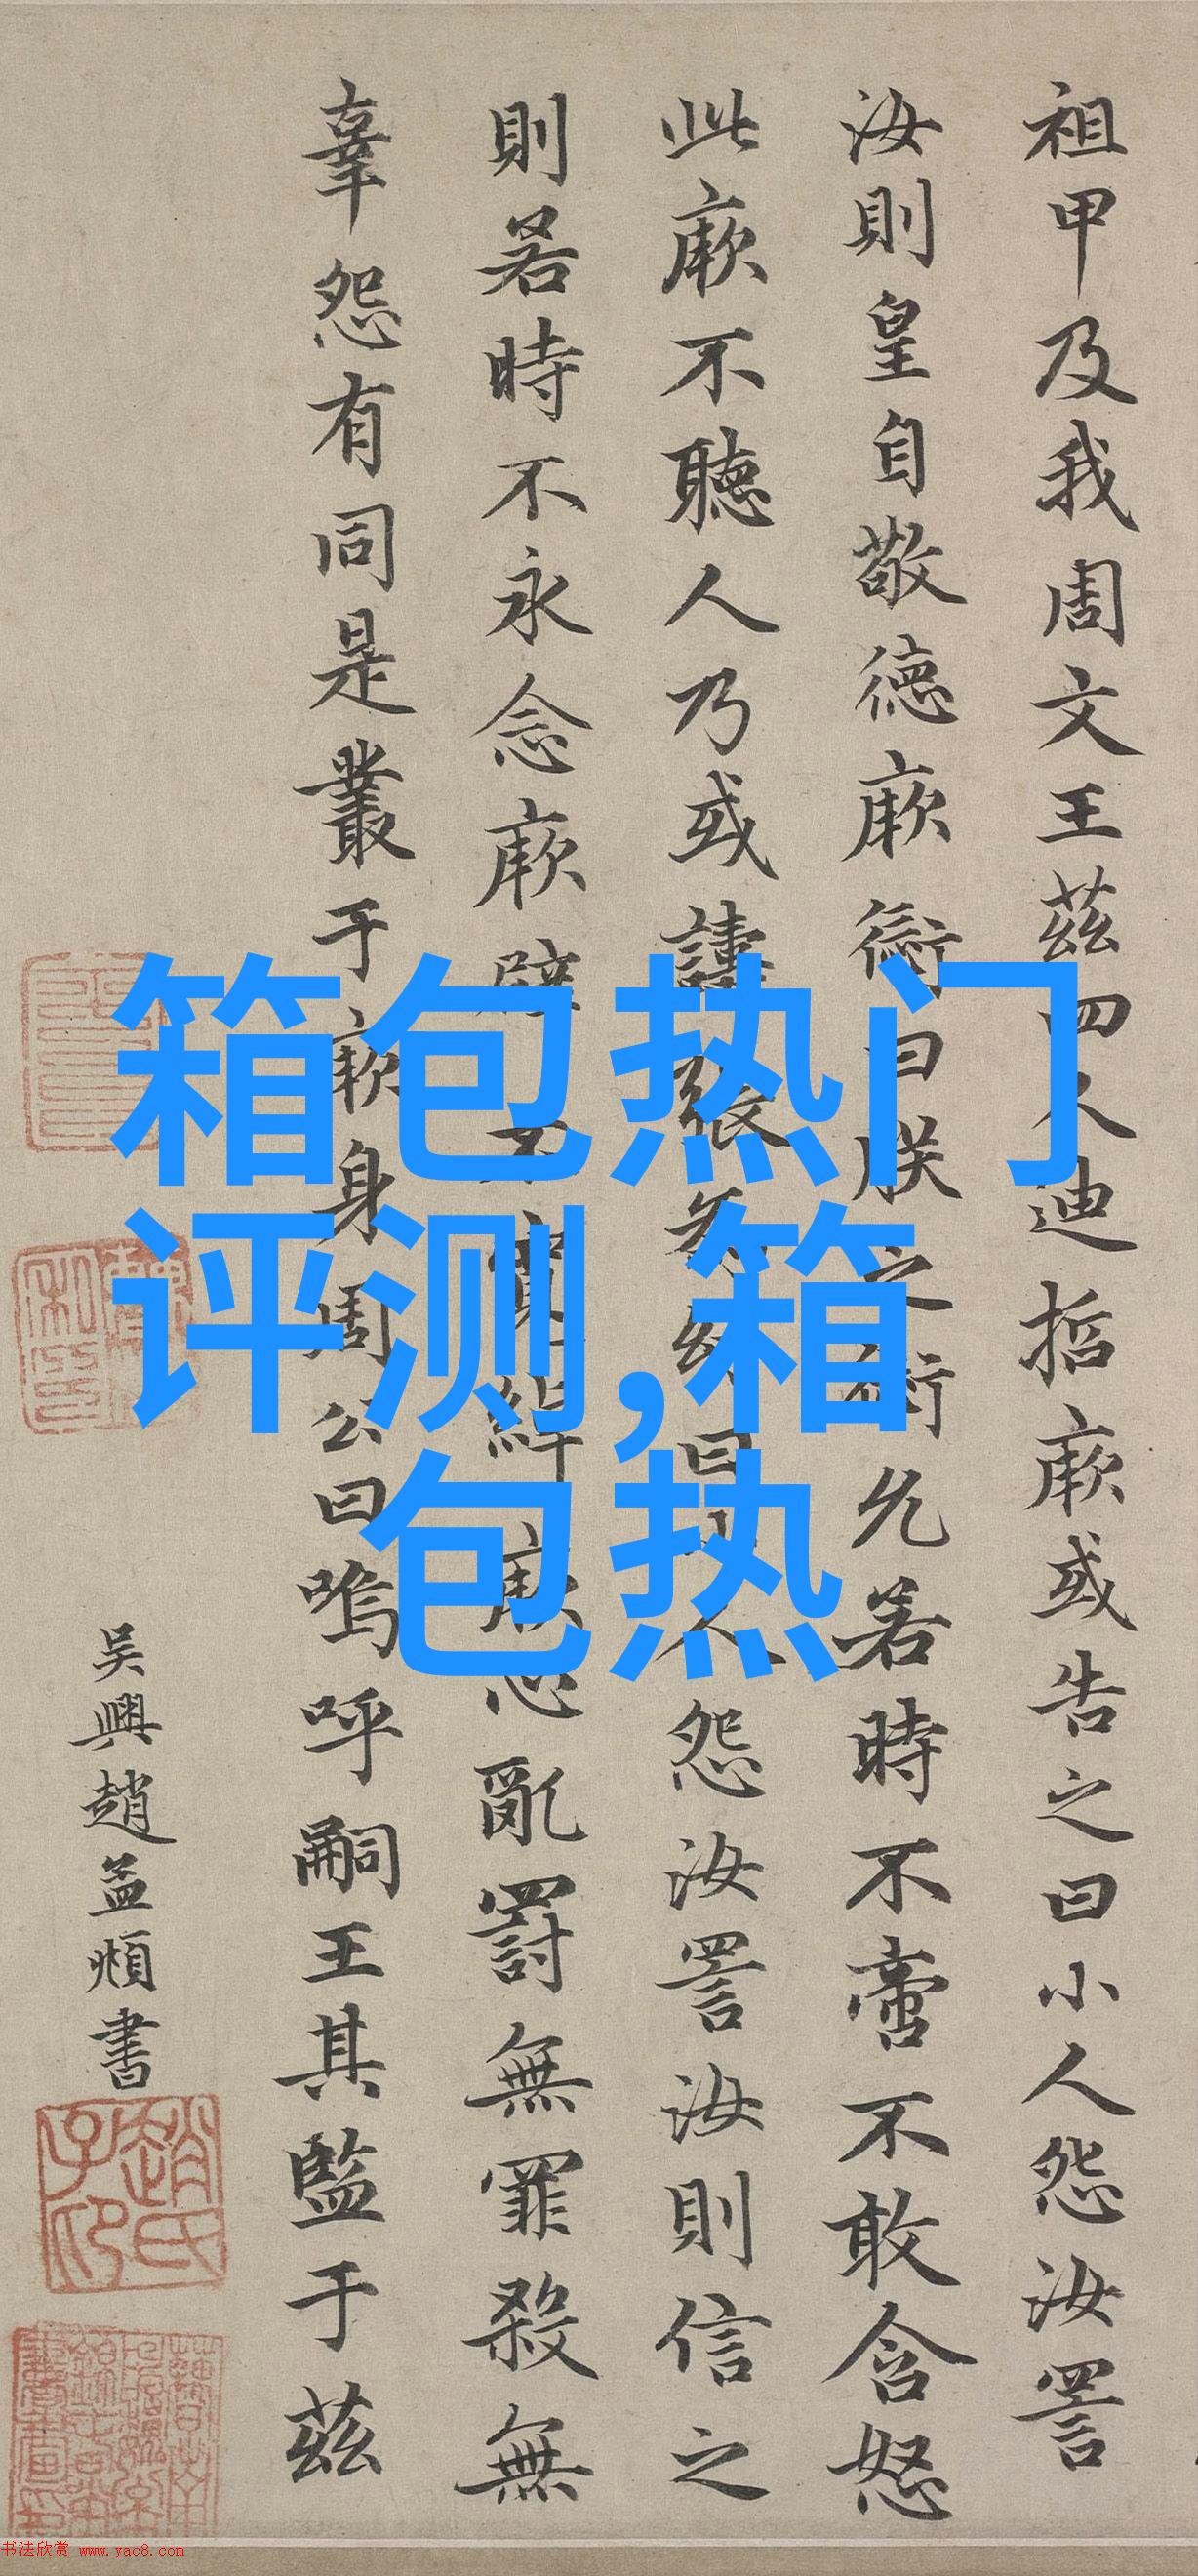 祖甲及我周文王茲四人迪哲厥或告之曰小人怨汝詈
汝則皇自敬德厥衍曰朕之衍允若時不啻不敢含怒
此厥不聽人乃或譸張為幻曰小人怨汝詈汝則信之
則若時不永念厥辟不寬綽厥心亂罰無罪殺無
辜怨有同是叢于厥身周公曰嗚呼嗣王其監于茲
吳興趙孟頫書
趙氏子印
箱包热门
评测,箱
包热
书法欣赏 www.yac8.com